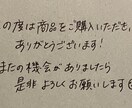 の度は商品をご購入いただき、
ありがとうございます！
またの機会がありましたら
是非よろしくお願いします